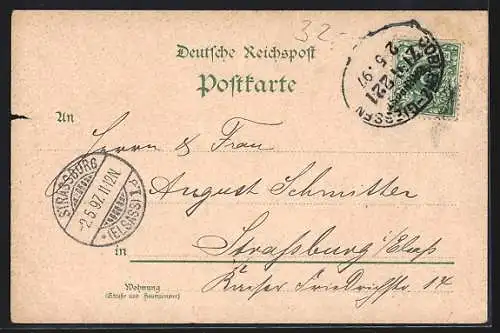 32.-
Deutsche Reichspost
Postkarte
An
Herrn & Frau
August Schmitter
in Straßburg i/Elsass
Kaiser Friedrichstr. 14
Wohnung
(Straße und Hausnummer)
STRASSBURG
-2.5.97.11-12N.
* (ELSASS) 1.
GIESSEN
ZUG 221
2.5.97